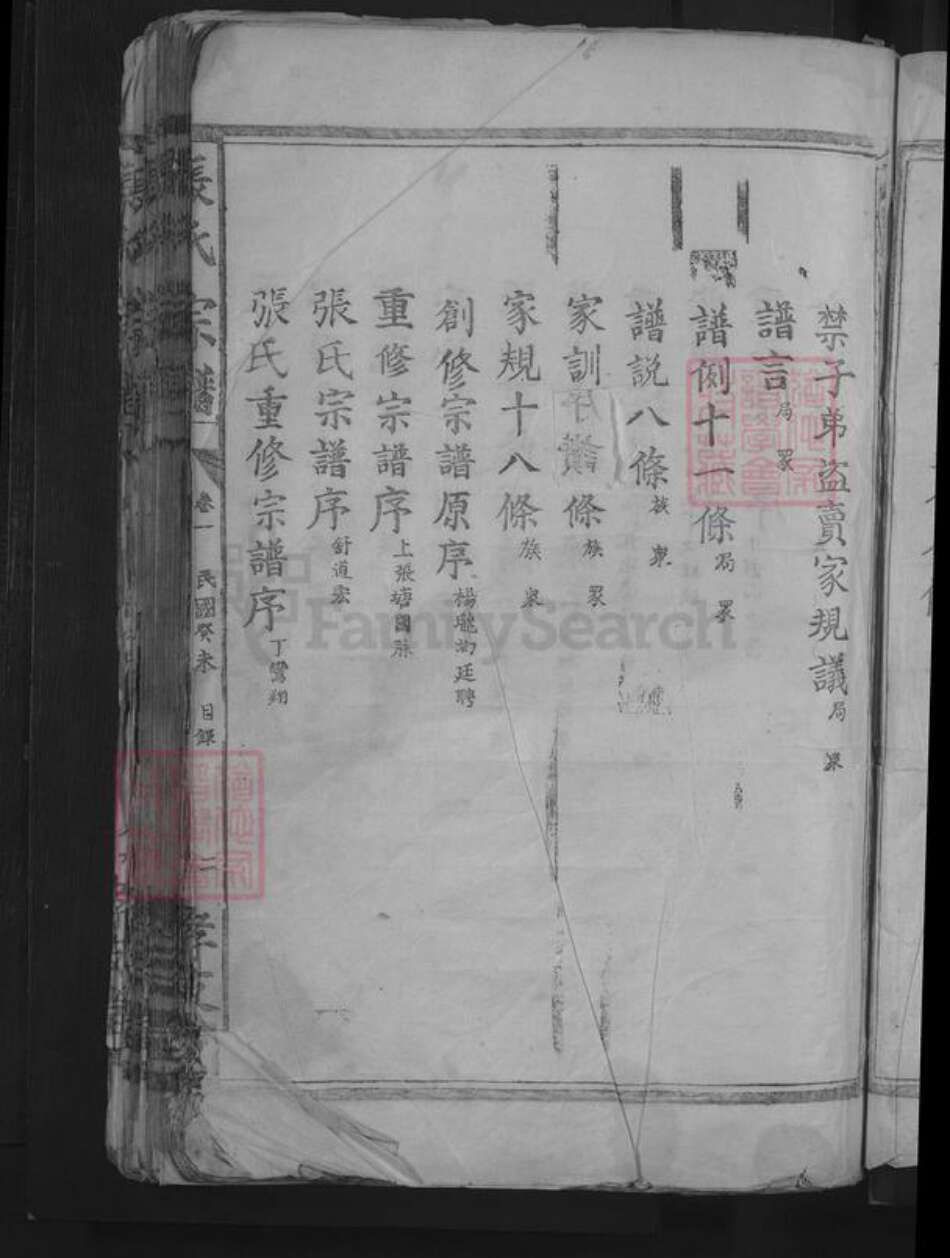 禁子弟盗賣家規議 局衆
譜言 局衆
譜例十一條 局衆
譜説八條 族衆
家訓 條 族衆
家規十八條 族衆
創修宗譜原序 楊 廷聘
重修宗譜序 上張塘國
張氏宗譜序 舒道宏
張氏重修宗譜序 丁鷺翔
張氏宗譜 卷一 民國癸未 目録 二 孝友
FamilySearch